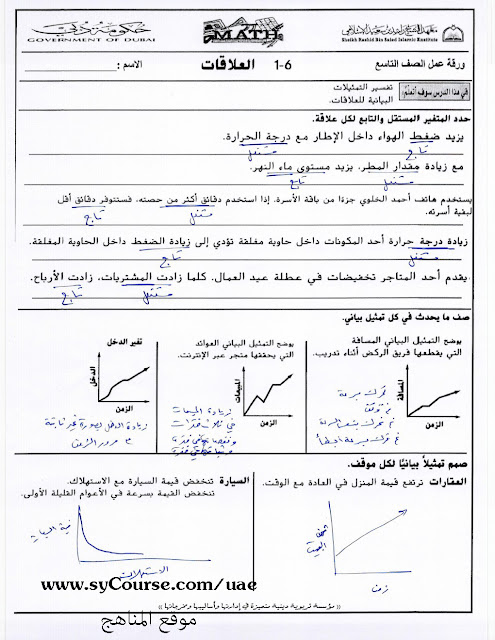 حكومة دبي
GOVERNMENT OF DUBAI
MATH
Sheikh Rashid Bin Saied Islamic Institute
ورقة عمل الصف التاسع
1-6 العلاقات
الاسم :
في هذا الدرس سوف أتعلم:
تفسير التمثيلات
البيانية للعلاقات.
حدد المتغير المستقل والتابع لكل علاقة.
يزيد ضغط الهواء داخل الإطار مع درجة الحرارة.
تابع مستقل
مع زيادة مقدار المطر، يزيد مستوى ماء النهر.
مستقل تابع
يستخدم هاتف أحمد الخلوي جزءًا من باقة الأسرة. إذا استخدم دقائق أكثر من حصته، فستتوفر دقائق أقل
لبقية أسرته.
مستقل تابع
زيادة درجة حرارة أحد المكونات داخل حاوية مغلقة تؤدي إلى زيادة الضغط داخل الحاوية المغلقة.
مستقل تابع
يقدم أحد المتاجر تخفيضات في عطلة عيد العمال. كلما زادت المشتريات، زادت الأرباح.
مستقل تابع
صف ما يحدث في كل تمثيل بياني.
يوضح التمثيل البياني المسافة
التي يقطعها فريق الركض أثناء تدريب.
المسافة
الزمن
تحرك بسرعة
ثم توقف
ثم تحرك بنفس السرعة
ثم تحرك بسرعة أبطأ
يوضح التمثيل البياني العوائد
التي يحققها متجر عبر الإنترنت.
المبيعات
الزمن
زيادة المبيعات
في ثلاث فترات
تغير الدخل
الدخل
الزمن
زيادة الدخل بصورة غير ثابتة
مع مرور الزمن
صمم تمثيلاً بيانيًا لكل موقف.
العقارات ترتفع قيمة المنزل في العادة مع الوقت.
البيت
زمن
السيارة تنخفض قيمة السيارة مع الاستهلاك.
تنخفض القيمة بسرعة في الأعوام القليلة الأولى.
قيمة السيارة
الاستهلاك
www.syCourse.com/uae
(( مؤسسة تربوية دينية متميزة في إدارتها وأساليبها ومخرجاتها ))
موقع المناهج